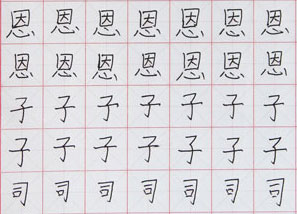 恩恩恩恩恩恩恩
恩恩恩恩恩恩恩
子子子子子子子
子子子子子子子
司司司司司司司